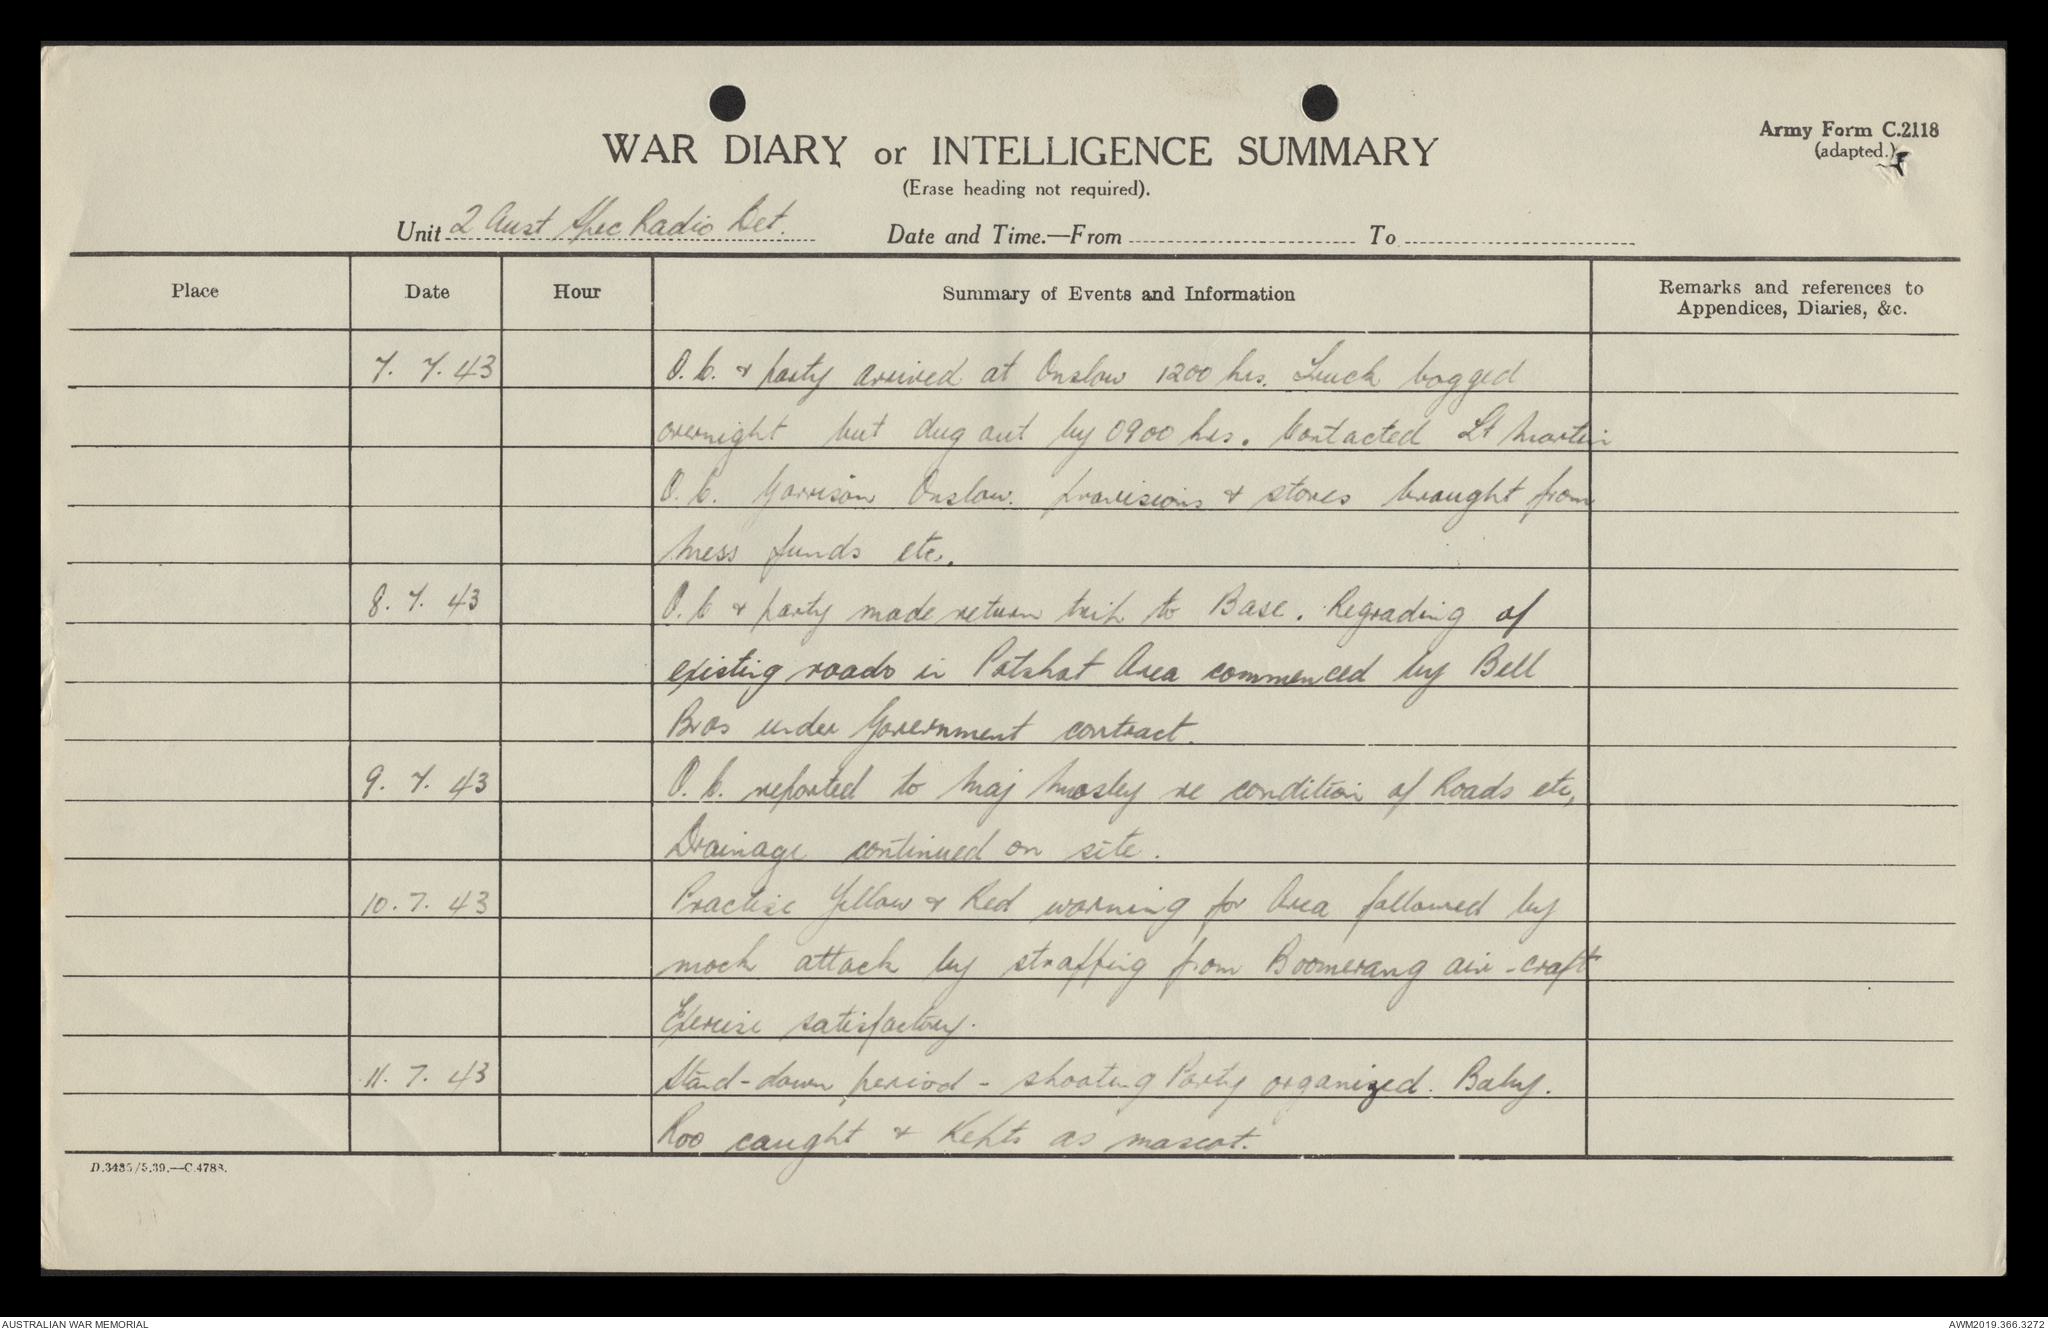 Army Form C.2118
(adapted.)
WAR DIARY or INTELLIGENCE SUMMARY
(Erase heading not required).
Unit 2 Aust Spec Radio Det. Date and Time.—From To
Place Date Hour Summary of Events and Information Remarks and references to
Appendices, Diaries, &c.
7. 7. 43 O.C. & party arrived at Onslow 1200 hrs. Truck bogged
overnight but dug out by 0900 hrs. Contacted Lt Martin
O.C. Garrison Onslow. Provisions & stores brought from
Mess funds etc.
8. 7. 43 O.C & party made return trip to Base. Regrading of
existig roads in Potshot Area commenced by Bell
Bros under Government contract.
9. 7. 43 O.C. reported to Maj Mosley re condition of Roads etc,
Drainage continued on site.
10. 7. 43 Practise Yellow & Red warning for Area followed by
mock attack by straffing from Boomerang air-craft
Exercise satisfactory.
11. 7. 43 Stand-down period - shooting Party organized. Baby.
Roo caught & Kept as mascot.
D.3435/5.39.—C.4783.
AUSTRALIAN WAR MEMORIAL
AWM2019.366.3272